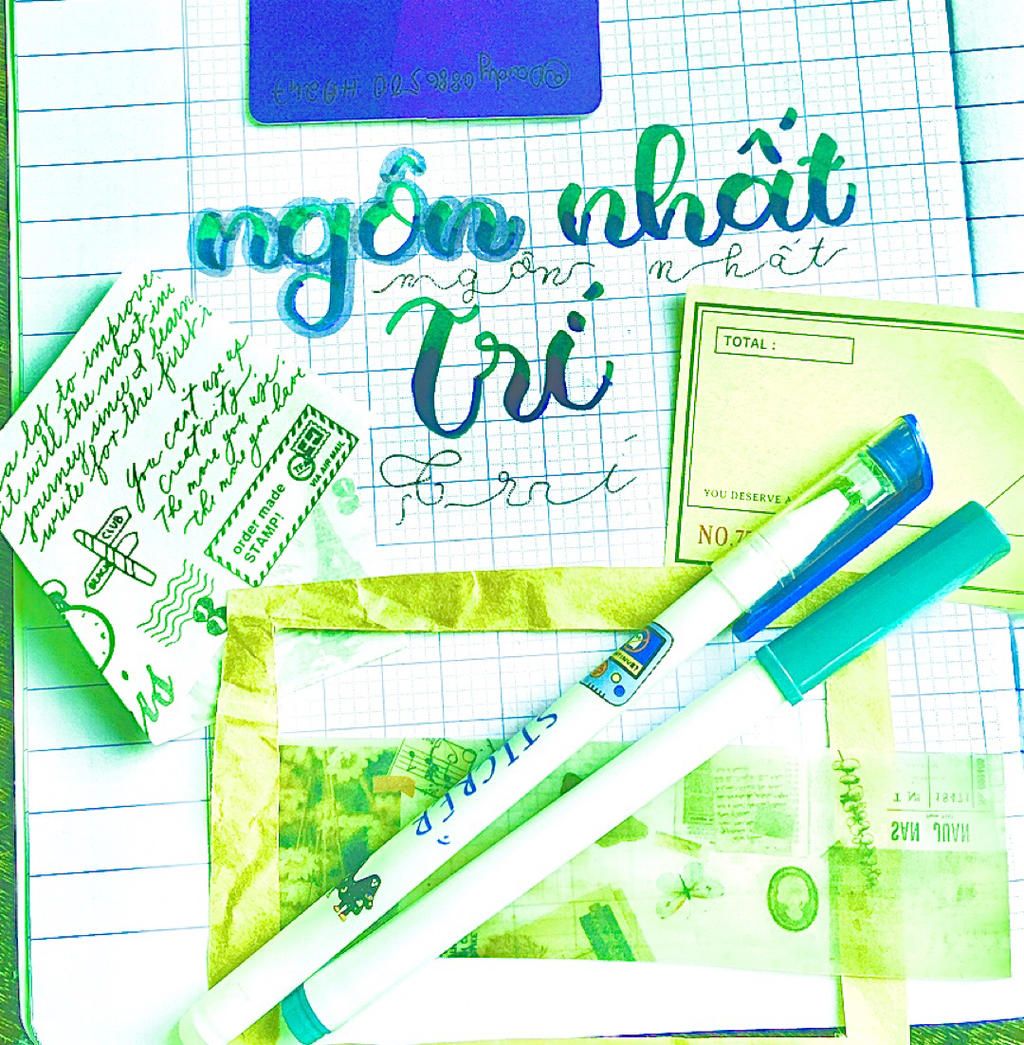 ngôn nhất
ngôn nhất
Trí
Trí
a lot to improve.
it will the most ini
journey since I learn
write for the first i
You can't use up
creativity.
The more you use.
the more you have
VIA AIR MAIL
order made
STAMP!
CLUB
is
TOTAL :
YOU DESERVE A
NO.7
STICKER
17481
IN T
SAN JUAN